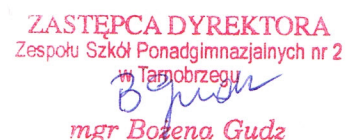 ZASTĘPCA DYREKTORA
Zespołu Szkół Ponadgimnazjalnych nr 2
w Tarnobrzegu
mgr Bożena Gudz